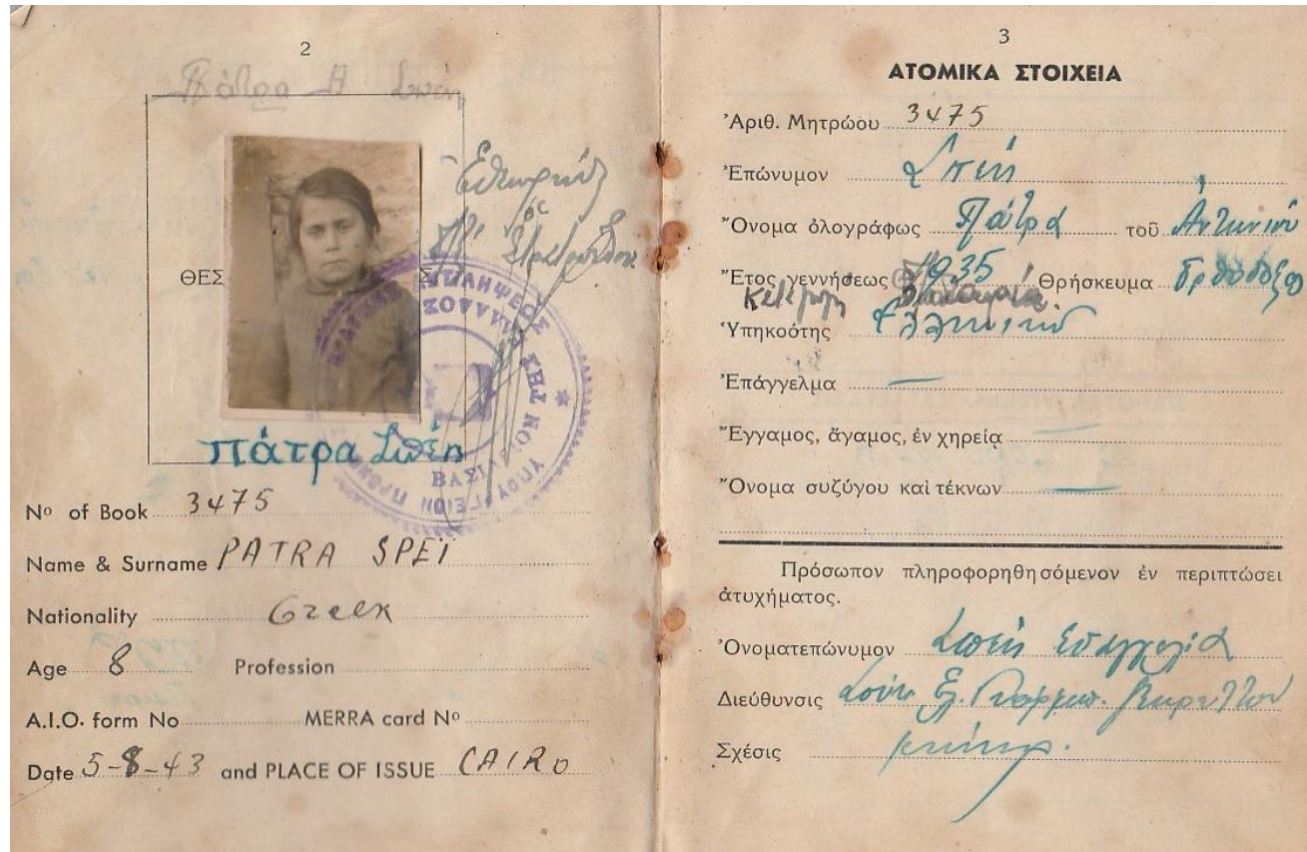 2
Πάτρα Α Σπέη
ΘΕΣ Σ
ΒΑΣΙΛ
Πάτρα Σπέη
Nο of Book 3475
Name & Surname PATRA SPEI
Nationality Greek
Age 8 Profession
A.I.O. form No MERRA card Nο
Date 5-8-43 and PLACE OF ISSUE CAIRO
3
ΑΤΟΜΙΚΑ ΣΤΟΙΧΕΙΑ
Ἀριθ. Μητρώου 3475
Ἐπώνυμον Σπέη
Ὄνομα ὁλογράφως Πάτρα τοῦ Ἀντωνίου
Ἔτος γεννήσεως 1935 Θρήσκευμα
Ὑπηκοότης
Ἐπάγγελμα —
Ἔγγαμος, ἄγαμος, ἐν χηρείᾳ —
Ὄνομα συζύγου καὶ τέκνων —
Πρόσωπον πληροφορηθησόμενον ἐν περιπτώσει
ἀτυχήματος.
Ὀνοματεπώνυμον Σπέη Εὐαγγελία
Διεύθυνσις
Σχέσις μήτηρ.